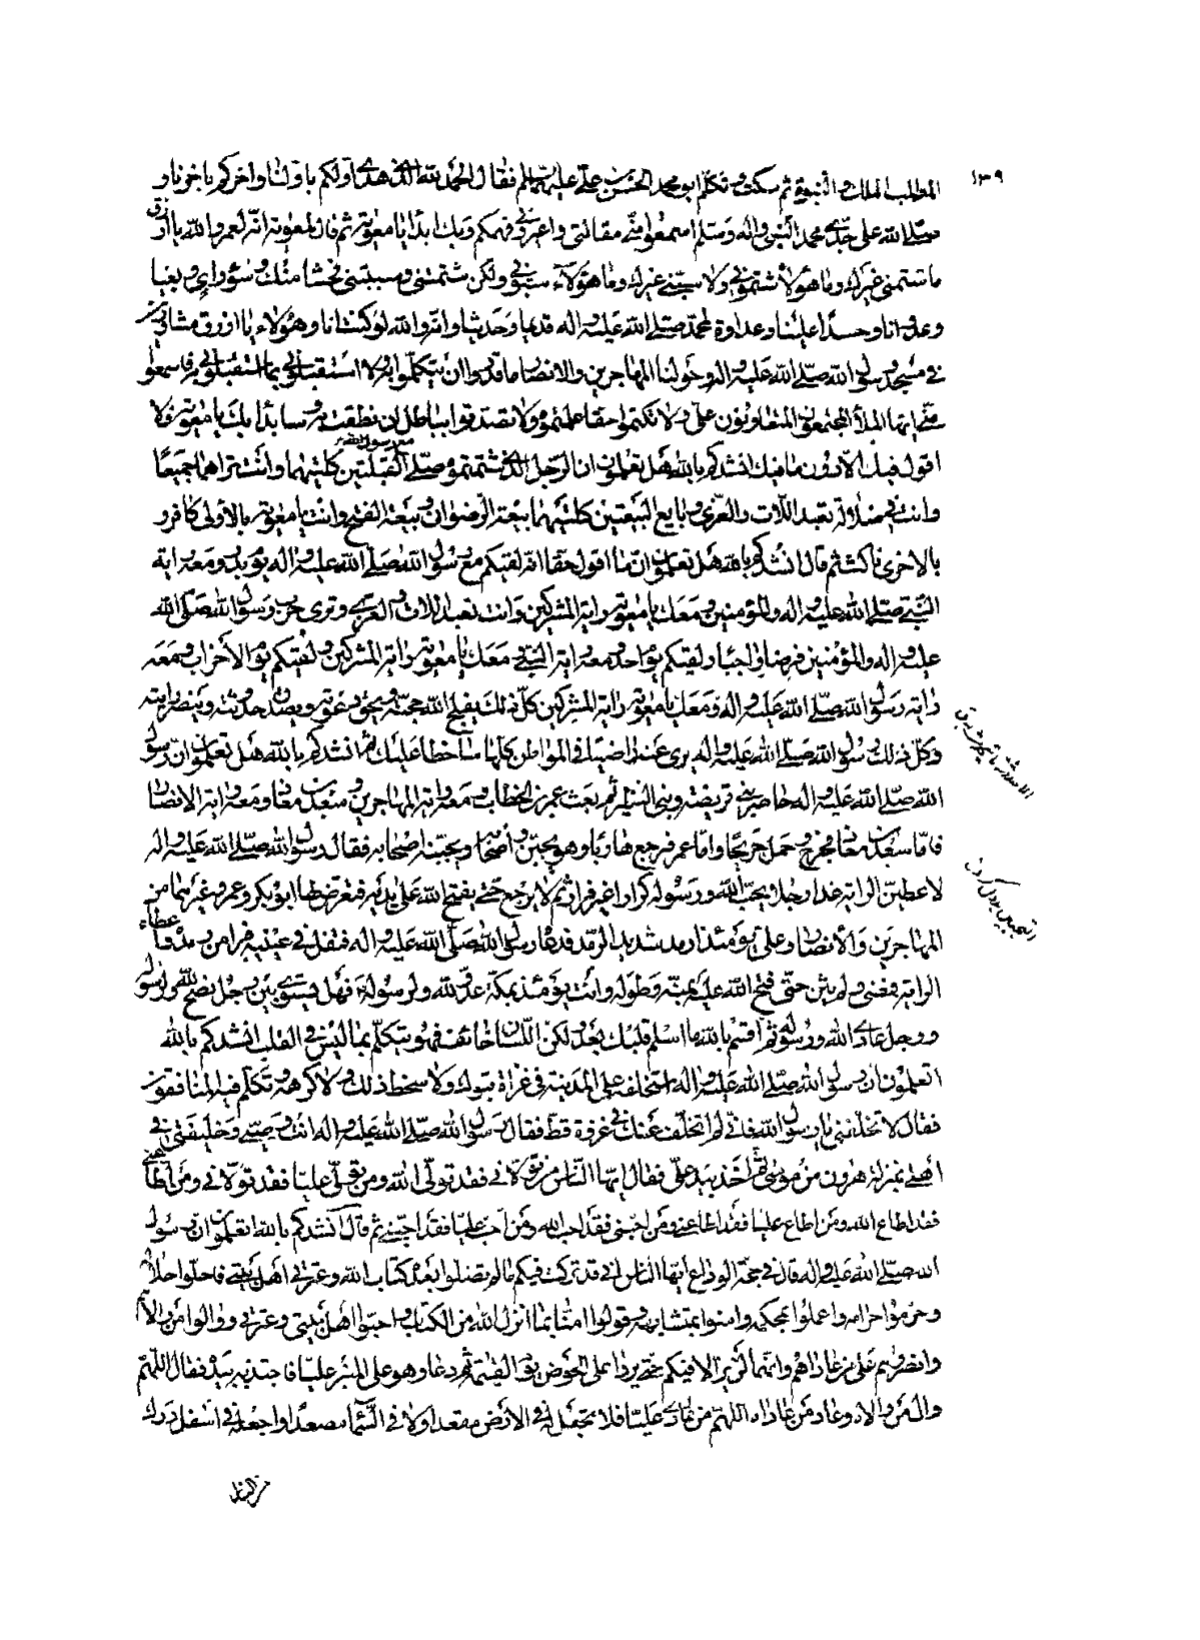 ١٣٩
المطلب الملك والنبوة ثم سكت وتكلم ابو محمد الحسن بن علي عليهما السلام فقال الحمد لله الذي هدى اولكم باولنا واخركم باخرنا و
صلى الله على جدي محمد النبي واله وسلم اسمعوا مني مقالتي واعيروني فهمكم وبك ابدا يا معوية ثم قال لمعوية انه لعمر والله يا ازرق
ما شتمني غيرك وما هؤلاء شتموني ولا سبني غيرك وما هؤلاء سبوني ولكن شتمتني وسببتني فحشا منك وسوء راي وبغيا
وعدوانا وحسدا علينا وعداوة لمحمد صلى الله عليه واله قديما وحديثا وانه والله لو كنت انا وهؤلاء يا ازرق مشاورين
في مسجد رسول الله صلى الله عليه واله وحولنا المهاجرين والانصار ما قدروا ان يتكلموا به ولا استقبلوني بما استقبلوني به فاسمعوا
مني ايها الملأ المجتمعون المتعاونون علي ولا تكتموا حقا علمتموه ولا تصدقوا بباطل ان نطقت به وسابدأ بك يا معوية ولا
اقول فيك الا دون ما فيك انشدكم بالله هل تعلمون ان الرجل الذي شتمتموه صلى مع رسول الله القبلتين كلتيهما وانت تراهما جميعا
وانت في ضلالة تعبد اللات والعزى وبايع البيعتين كلتيهما بيعة الرضوان وبيعة الفتح وانت يا معوية بالاولى كافر و
بالاخرى ناكث ثم قال انشدكم بالله هل تعلمون ان ما اقول حقا انه لقيكم مع رسول الله صلى الله عليه واله يوم بدر ومعه راية
النبي صلى الله عليه واله والمؤمنين ومعك يا معوية راية المشركين وانت تعبد اللات والعزى وترى حرب رسول الله صلى الله
عليه واله والمؤمنين فرضا واجبا ولقيكم يوم احد ومعه راية النبي ومعك يا معوية راية المشركين ولقيكم يوم الاحزاب ومعه
راية رسول الله صلى الله عليه واله ومعك يا معوية راية المشركين كل ذلك يفلج الله حجته ويحق دعوته ويصدق احدوثته وينصر رايته
وكل ذلك رسول الله صلى الله عليه واله يرى عنه راضيا في المواطن كلها ساخطا عليك ثم انشدكم بالله هل تعلمون ان رسول
الله صلى الله عليه واله حاصر بني قريظة وبني النضير ثم بعث عمر بن الخطاب ومعه راية المهاجرين وسعد بن معاذ ومعه راية الانصار
فاما سعد بن معاذ فخرج وحمل جريحا واما عمر فرجع هاربا وهو يجبن اصحابه ويجبنه اصحابه فقال رسول الله صلى الله عليه واله
لاعطين الراية غدا رجلا يحب الله ورسوله كرار غير فرار ثم لا يرجع حتى يفتح الله على يديه فتعرض لها ابو بكر وعمر وغيرهما من
المهاجرين والانصار وعلي يومئذ ارمد شديد الرمد فدعاه رسول الله صلى الله عليه واله فتفل في عينيه فبرأ من رمده واعطاه
الراية فمضى ولم يثن حتى فتح الله عليه بمنه وطوله وانت يومئذ بمكة عدو لله ولرسوله فهل يستوي بين رجل نصح لله ولرسوله
ورجل عادى الله ورسوله ثم اقسم بالله ما اسلم قلبك بعد لكن اللسان خائف فهو يتكلم بما ليس في القلب انشدكم بالله
اتعلمون ان رسول الله صلى الله عليه واله استخلفه على المدينة في غزاة تبوك ولا سخط ذلك ولا كرهه وتكلم فيه المنافقون
فقال لا تخلفني يا رسول الله فاني لم اتخلف عنك في غزوة قط فقال رسول الله صلى الله عليه واله انت وصيي وخليفتي في
اهلي بمنزلة هرون من موسى ثم اخذ بيد علي فقال ايها الناس من تولاني فقد تولى الله ومن تولى عليا فقد تولاني ومن اطاعني
فقد اطاع الله ومن اطاع عليا فقد اطاعني ومن احبني فقد احب الله ومن احب عليا فقد احبني ثم قال انشدكم بالله اتعلمون ان رسول
الله صلى الله عليه واله قال في حجة الوداع ايها الناس اني قد تركت فيكم ما لم تضلوا بعده كتاب الله وعترتي اهل بيتي فاحلوا حلاله
وحرموا حرامه واعملوا بمحكمه وامنوا بمتشابهه وقولوا امنا بما انزل الله من الكتاب واحبوا اهل بيتي وعترتي ووالوا من والاهم
وانصروهم على من عاداهم وانهما لم يزالا فيكم حتى يردا على الحوض يوم القيمة ثم دعا وهو على المنبر عليا فاجتذبه بيده فقال اللهم
وال من والاه وعاد من عاداه اللهم من عادى عليا فلا تجعل له في الارض مقعدا ولا في السماء مصعدا واجعله في اسفل درك
من النار